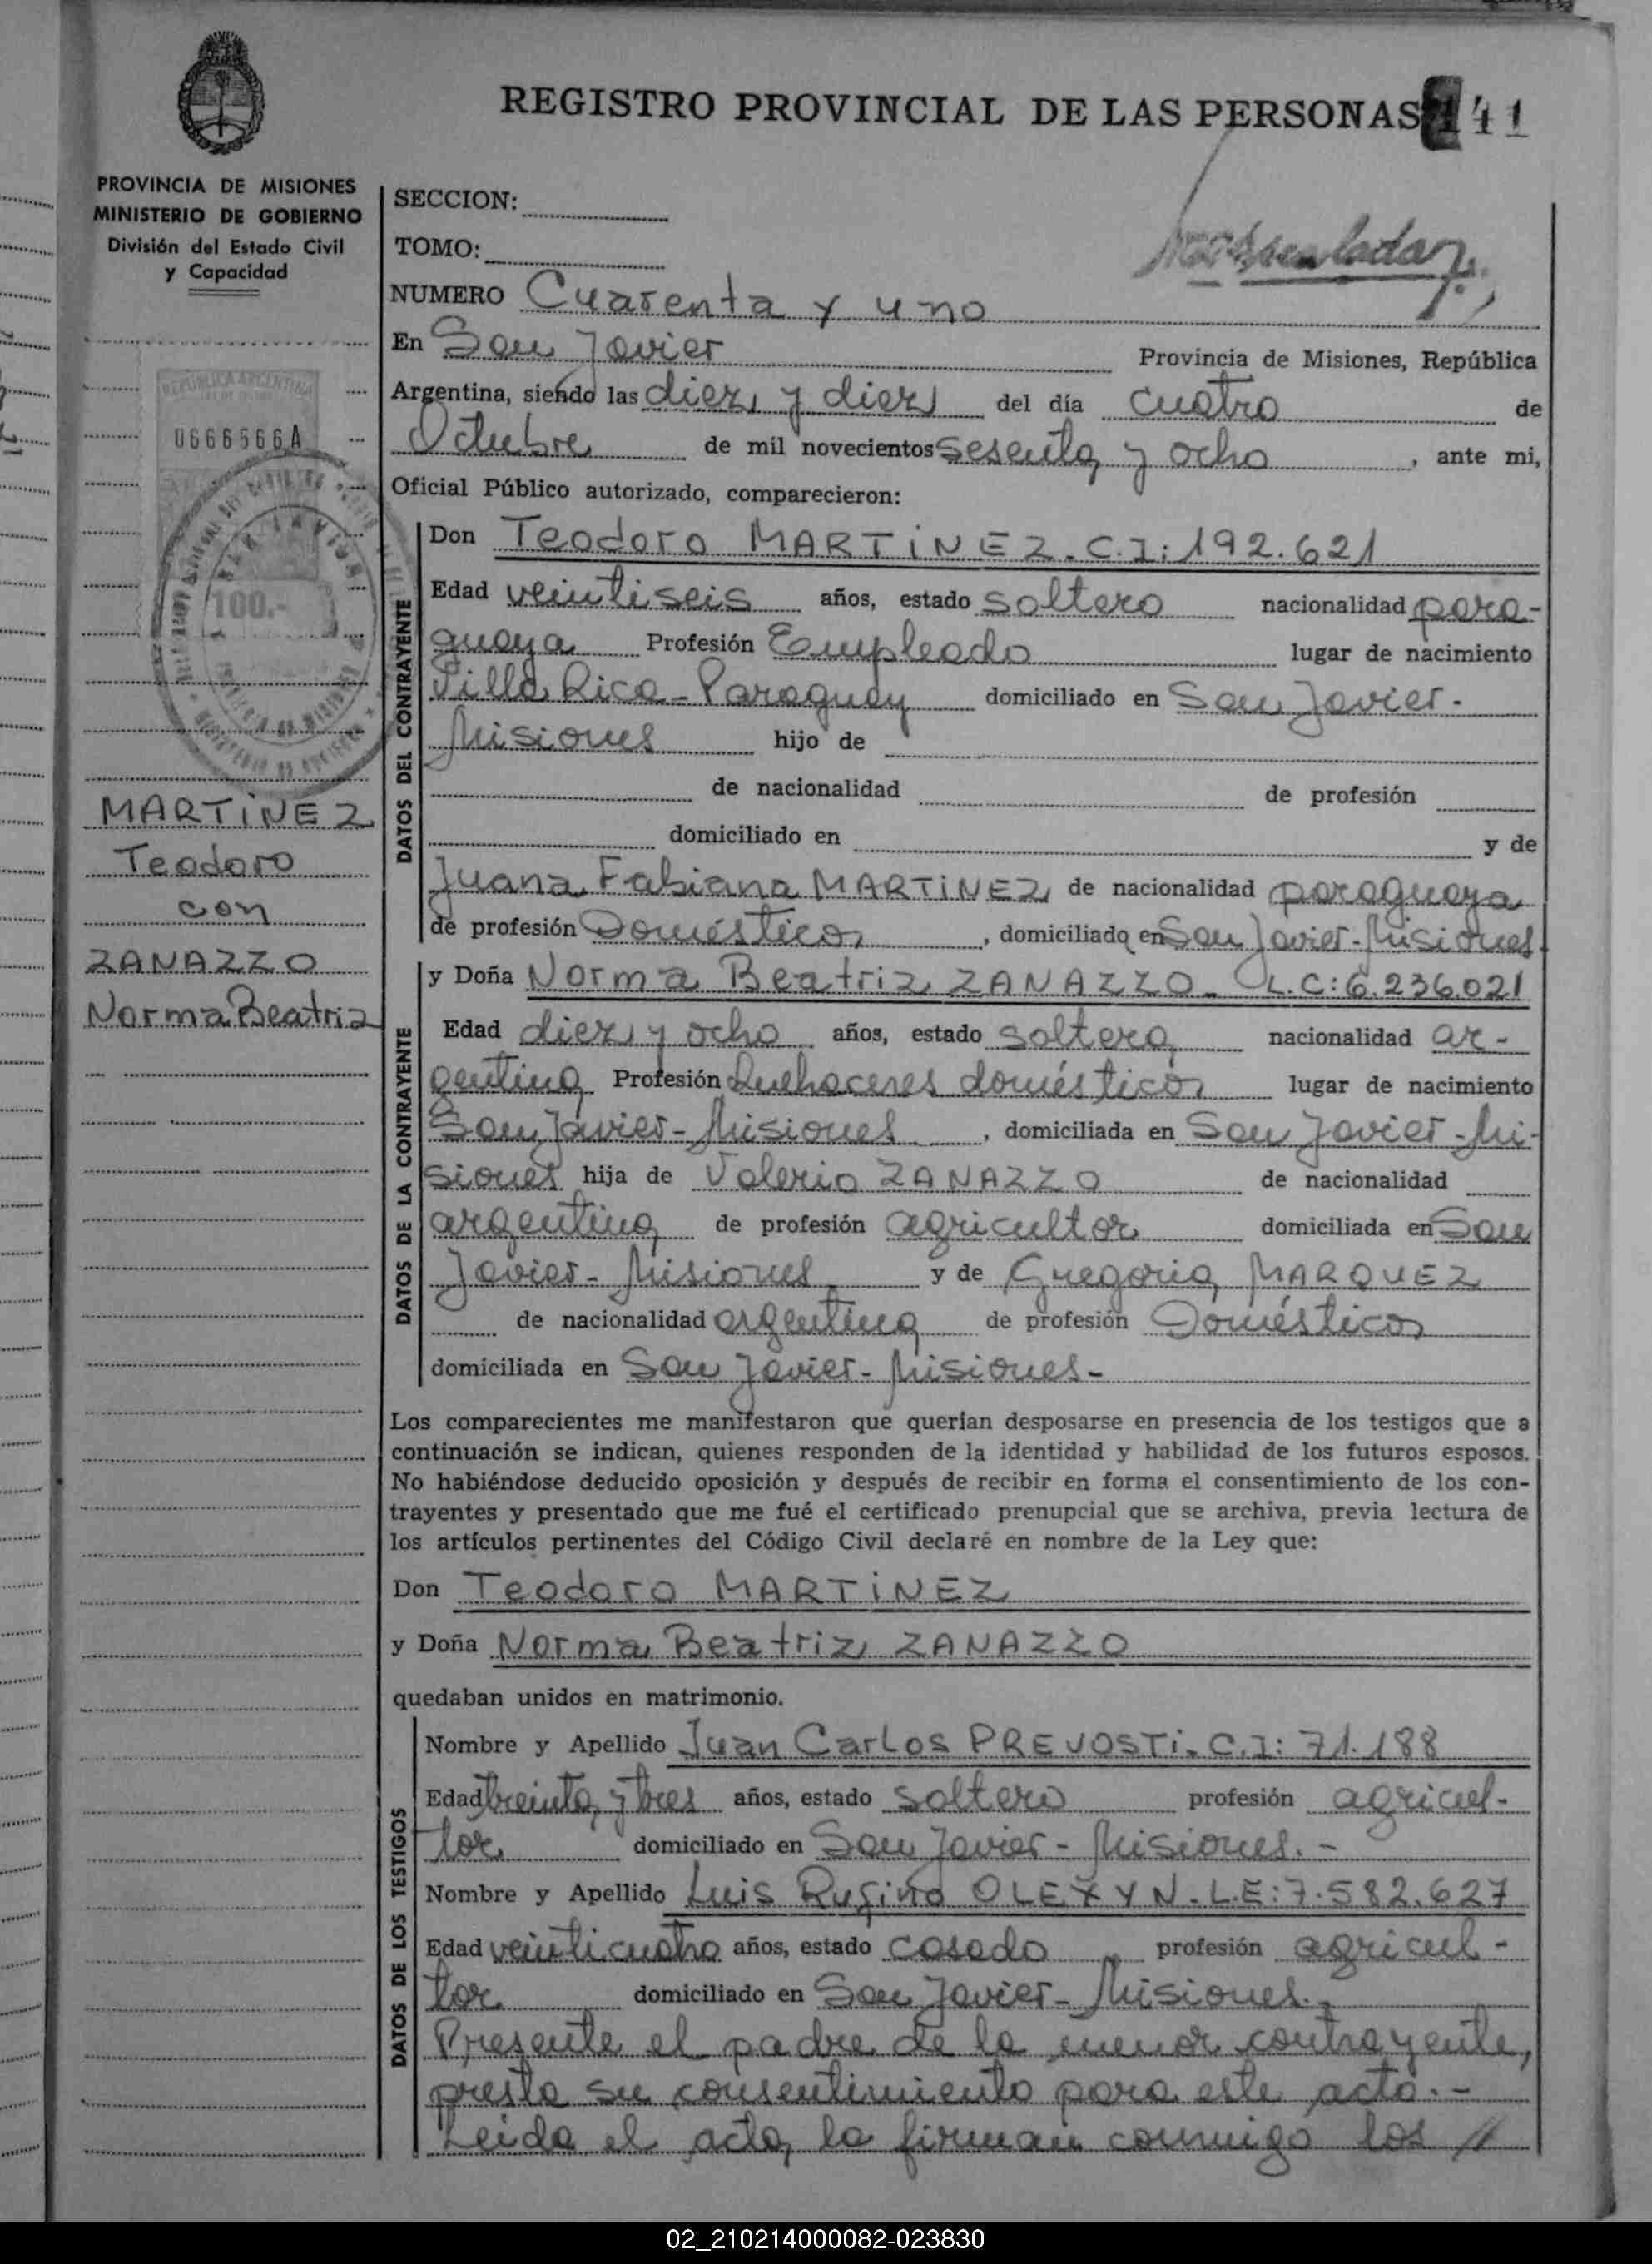 REGISTRO PROVINCIAL DE LAS PERSONAS 141
PROVINCIA DE MISIONES
MINISTERIO DE GOBIERNO
División del Estado Civil
y Capacidad
SECCION:
TOMO:
NUMERO Cuarenta y uno
En San Javier Provincia de Misiones, República
Argentina, siendo las diez y diez del día cuatro de
Octubre de mil novecientos sesenta y ocho, ante mi,
Oficial Público autorizado, comparecieron:
REPUBLICA ARGENTINA
0666566A
100.-
MARTINEZ
Teodoro
con
ZANAZZO
Norma Beatriz
DATOS DEL CONTRAYENTE
Don Teodoro MARTINEZ. C.I: 192.621
Edad veintiseis años, estado soltero nacionalidad para-
guaya Profesión Empleado lugar de nacimiento
Villa Rica - Paraguay domiciliado en San Javier.
Misiones hijo de
de nacionalidad de profesión
domiciliado en y de
Juana Fabiana MARTINEZ de nacionalidad paraguaya
de profesión Doméstica, domiciliado en San Javier - Misiones
DATOS DE LA CONTRAYENTE
y Doña Norma Beatriz ZANAZZO - L.C: 6.236.021
Edad diez y ocho años, estado soltera nacionalidad ar-
gentina Profesión Quehaceres domésticos lugar de nacimiento
San Javier - Misiones, domiciliada en San Javier - Mi-
siones hija de Valerio ZANAZZO de nacionalidad
argentina de profesión agricultor domiciliada en San
Javier - Misiones y de Gregoria MARQUEZ
de nacionalidad argentina de profesión Doméstica
domiciliada en San Javier - Misiones -
Los comparecientes me manifestaron que querían desposarse en presencia de los testigos que a
continuación se indican, quienes responden de la identidad y habilidad de los futuros esposos.
No habiéndose deducido oposición y después de recibir en forma el consentimiento de los con-
trayentes y presentado que me fué el certificado prenupcial que se archiva, previa lectura de
los artículos pertinentes del Código Civil declaré en nombre de la Ley que:
Don Teodoro MARTINEZ
y Doña Norma Beatriz ZANAZZO
quedaban unidos en matrimonio.
DATOS DE LOS TESTIGOS
Nombre y Apellido Juan Carlos PREVOSTI. C.I: 71.188
Edad treinta y tres años, estado soltero profesión agricul-
tor domiciliado en San Javier - Misiones. -
Nombre y Apellido Luis Rufino OLEXYN. L.E: 7.582.627
Edad veinticuatro años, estado casado profesión agricul-
tor domiciliado en San Javier - Misiones.
Presente el padre de la menor contrayente,
presta su consentimiento para este acto. -
Leida el acta, la firman conmigo los //
02_210214000082-023830